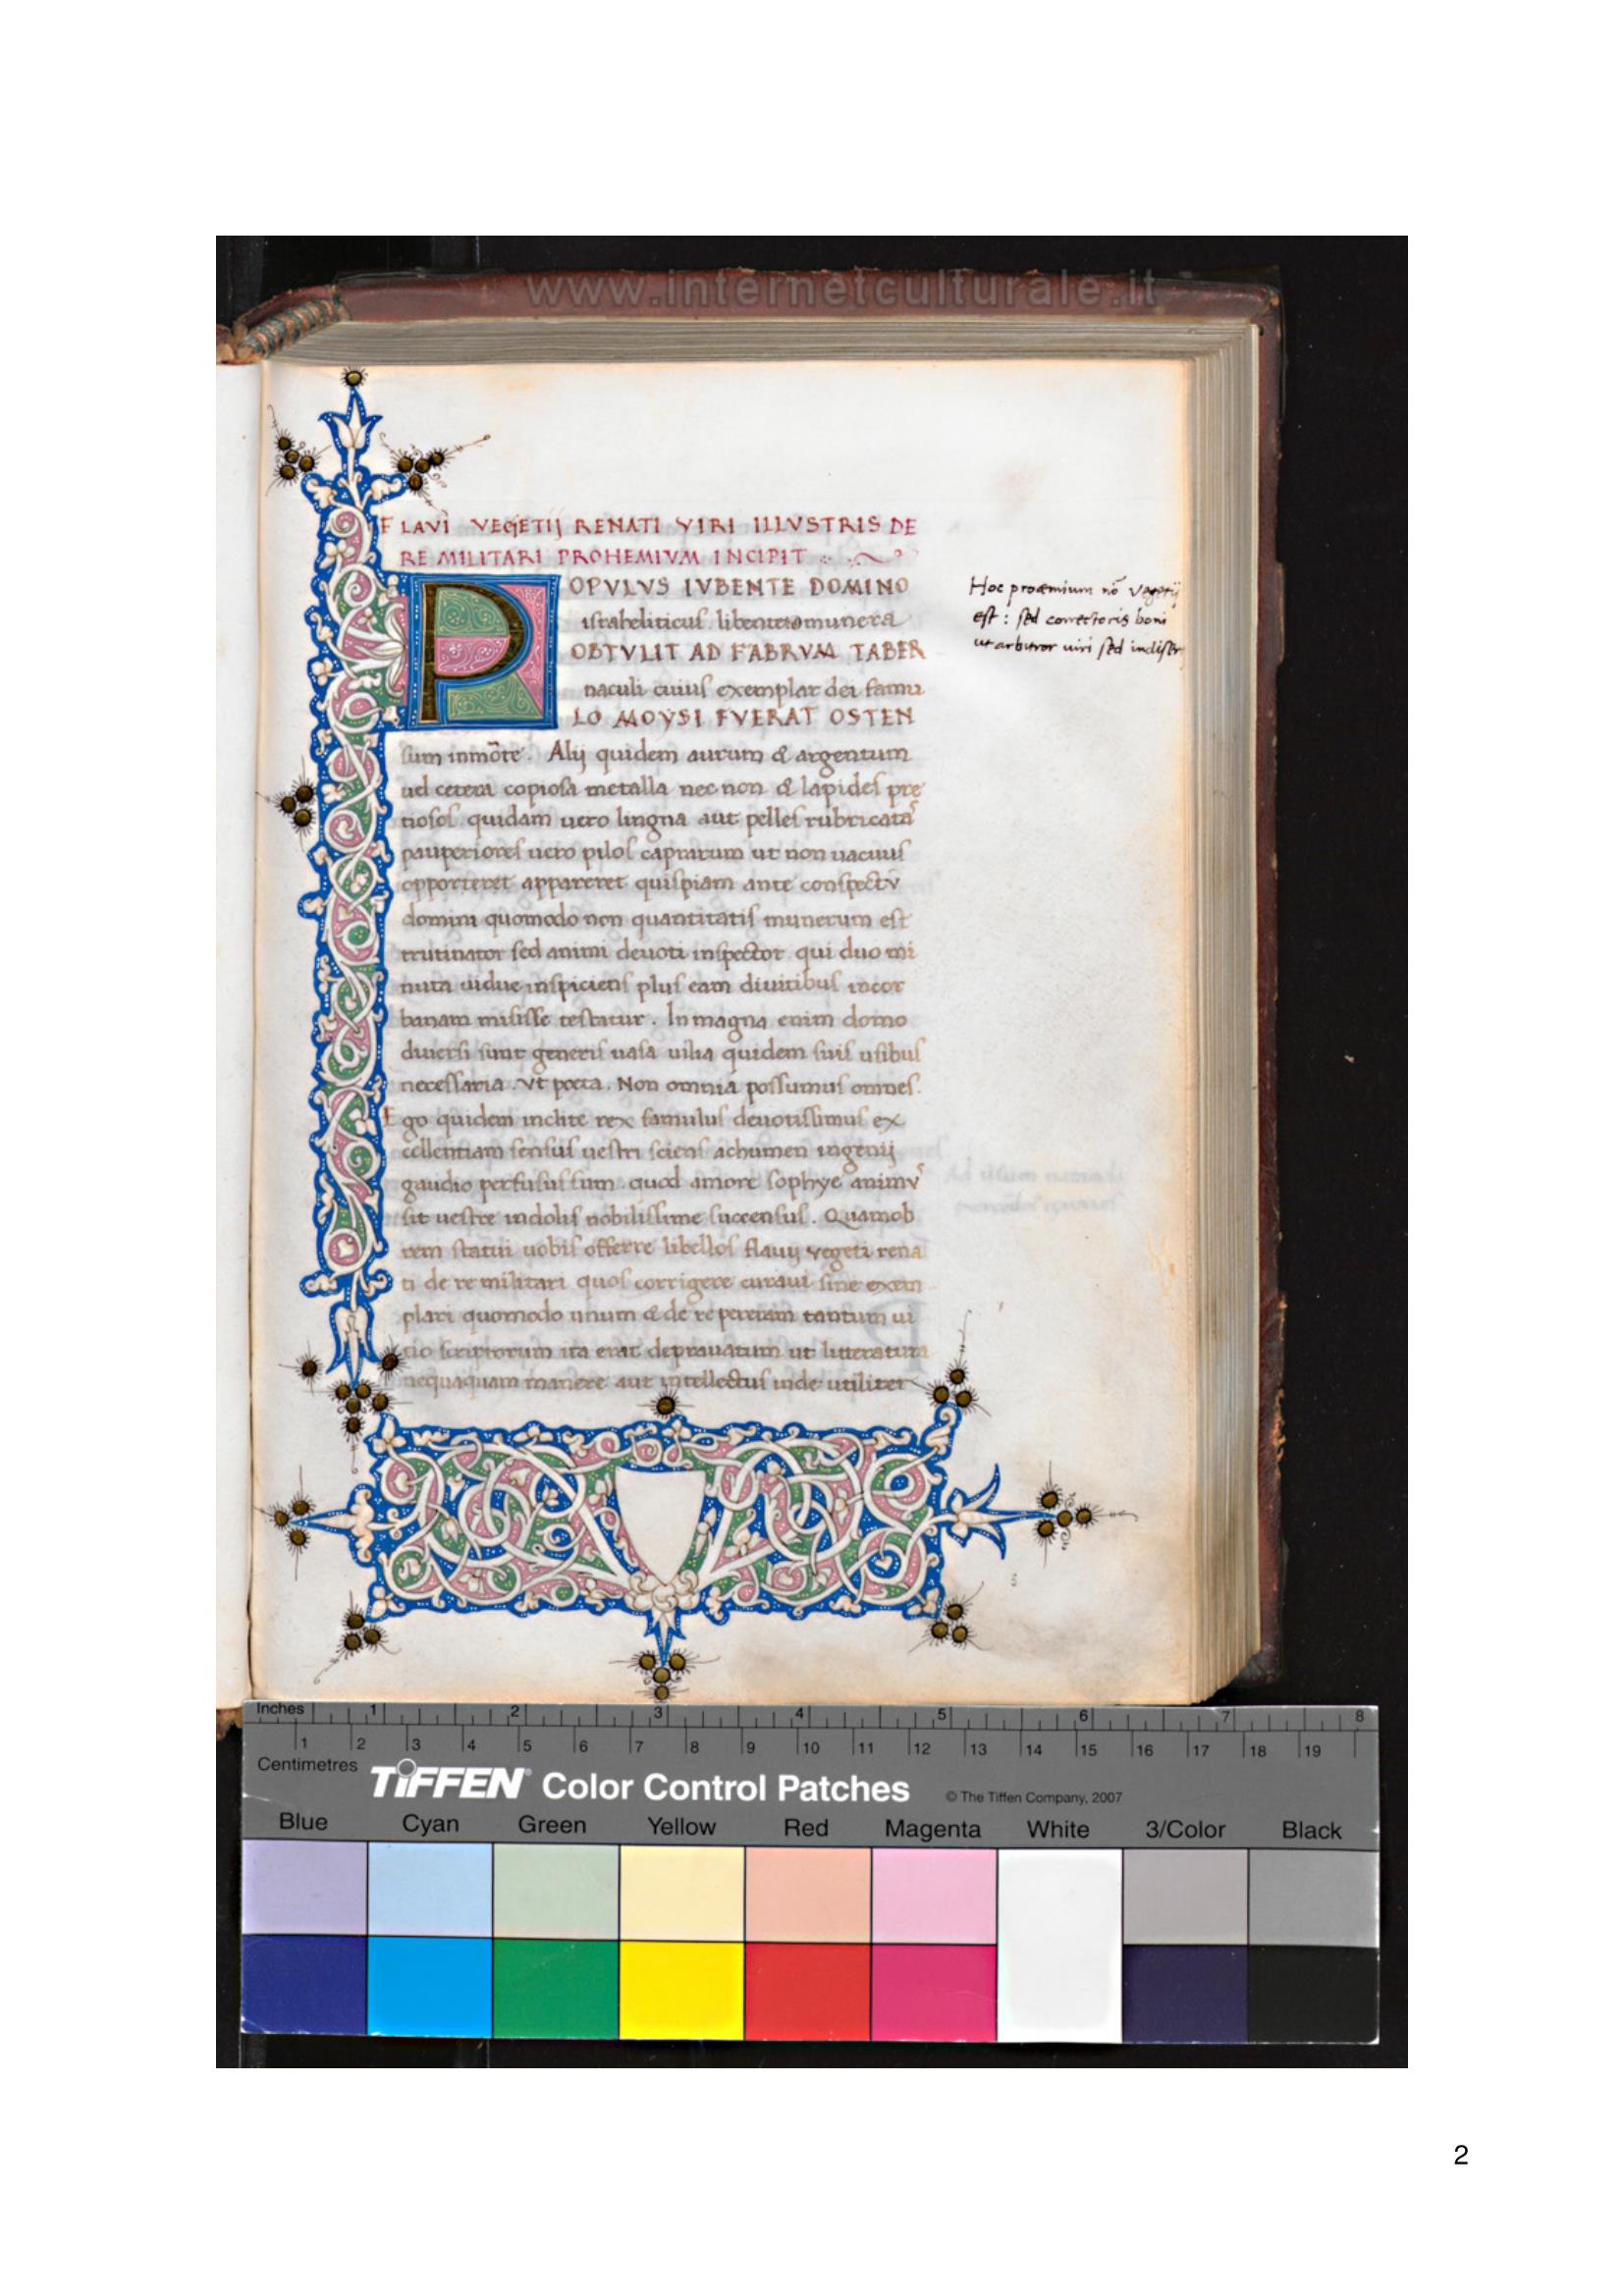 www.internetculturale.it
FLAVI VEGETIJ RENATI VIRI ILLVSTRIS DE
RE MILITARI PROHEMIVM INCIPIT
POPVLVS IVBENTE DOMINO
israheliticus libenter munera
OBTVLIT AD FABRVM TABER
naculi cuius exemplar dei famu
LO MOYSI FVERAT OSTEN
sum inmõte. Alij quidem aurum & argentum
uel cetera copiosa metalla nec non & lapides pre
tiosos quidam uero lingna aut pelles rubricatas
pauperiores uero pilos caprarum ut non uacuus
opporteret appareret quispiam ante conspectũ
domini quomodo non quantitatis munerum est
trutinator sed animi deuoti inspector qui duo mi
nuta uidue inspiciens plus eam diuitibus incor
banam misisse testatur. In magna enim domo
diuersi sunt generis uasa uilia quidem suis usibus
necessaria. Vt poeta. Non omnia possumus omnes.
Ego quidem inclite rex famulus deuotissimus ex
cellentiam sensus uestri sciens achumen ingenij
gaudio perfusus sum quod amore sophye animus
sit uestre indolis nobilissime succensus. Quamob
rem statui uobis offerre libellos flauij vegeti rena
ti de re militari quos corrigere curaui sine exem
plari quomodo unum & de repereram tantum ui
tio scriptorum ita erat deprauatum ut litteratura
nequaquam manere aut intellectus inde utiliter
Hoc proœmium nõ Vegetij
est: sed correctoris boni
ut arbitror uiri sed indiser
Inches 1 2 3 4 5 6 7 8
1 2 3 4 5 6 7 8 9 10 11 12 13 14 15 16 17 18 19
Centimetres
TIFFEN Color Control Patches © The Tiffen Company, 2007
Blue Cyan Green Yellow Red Magenta White 3/Color Black
2